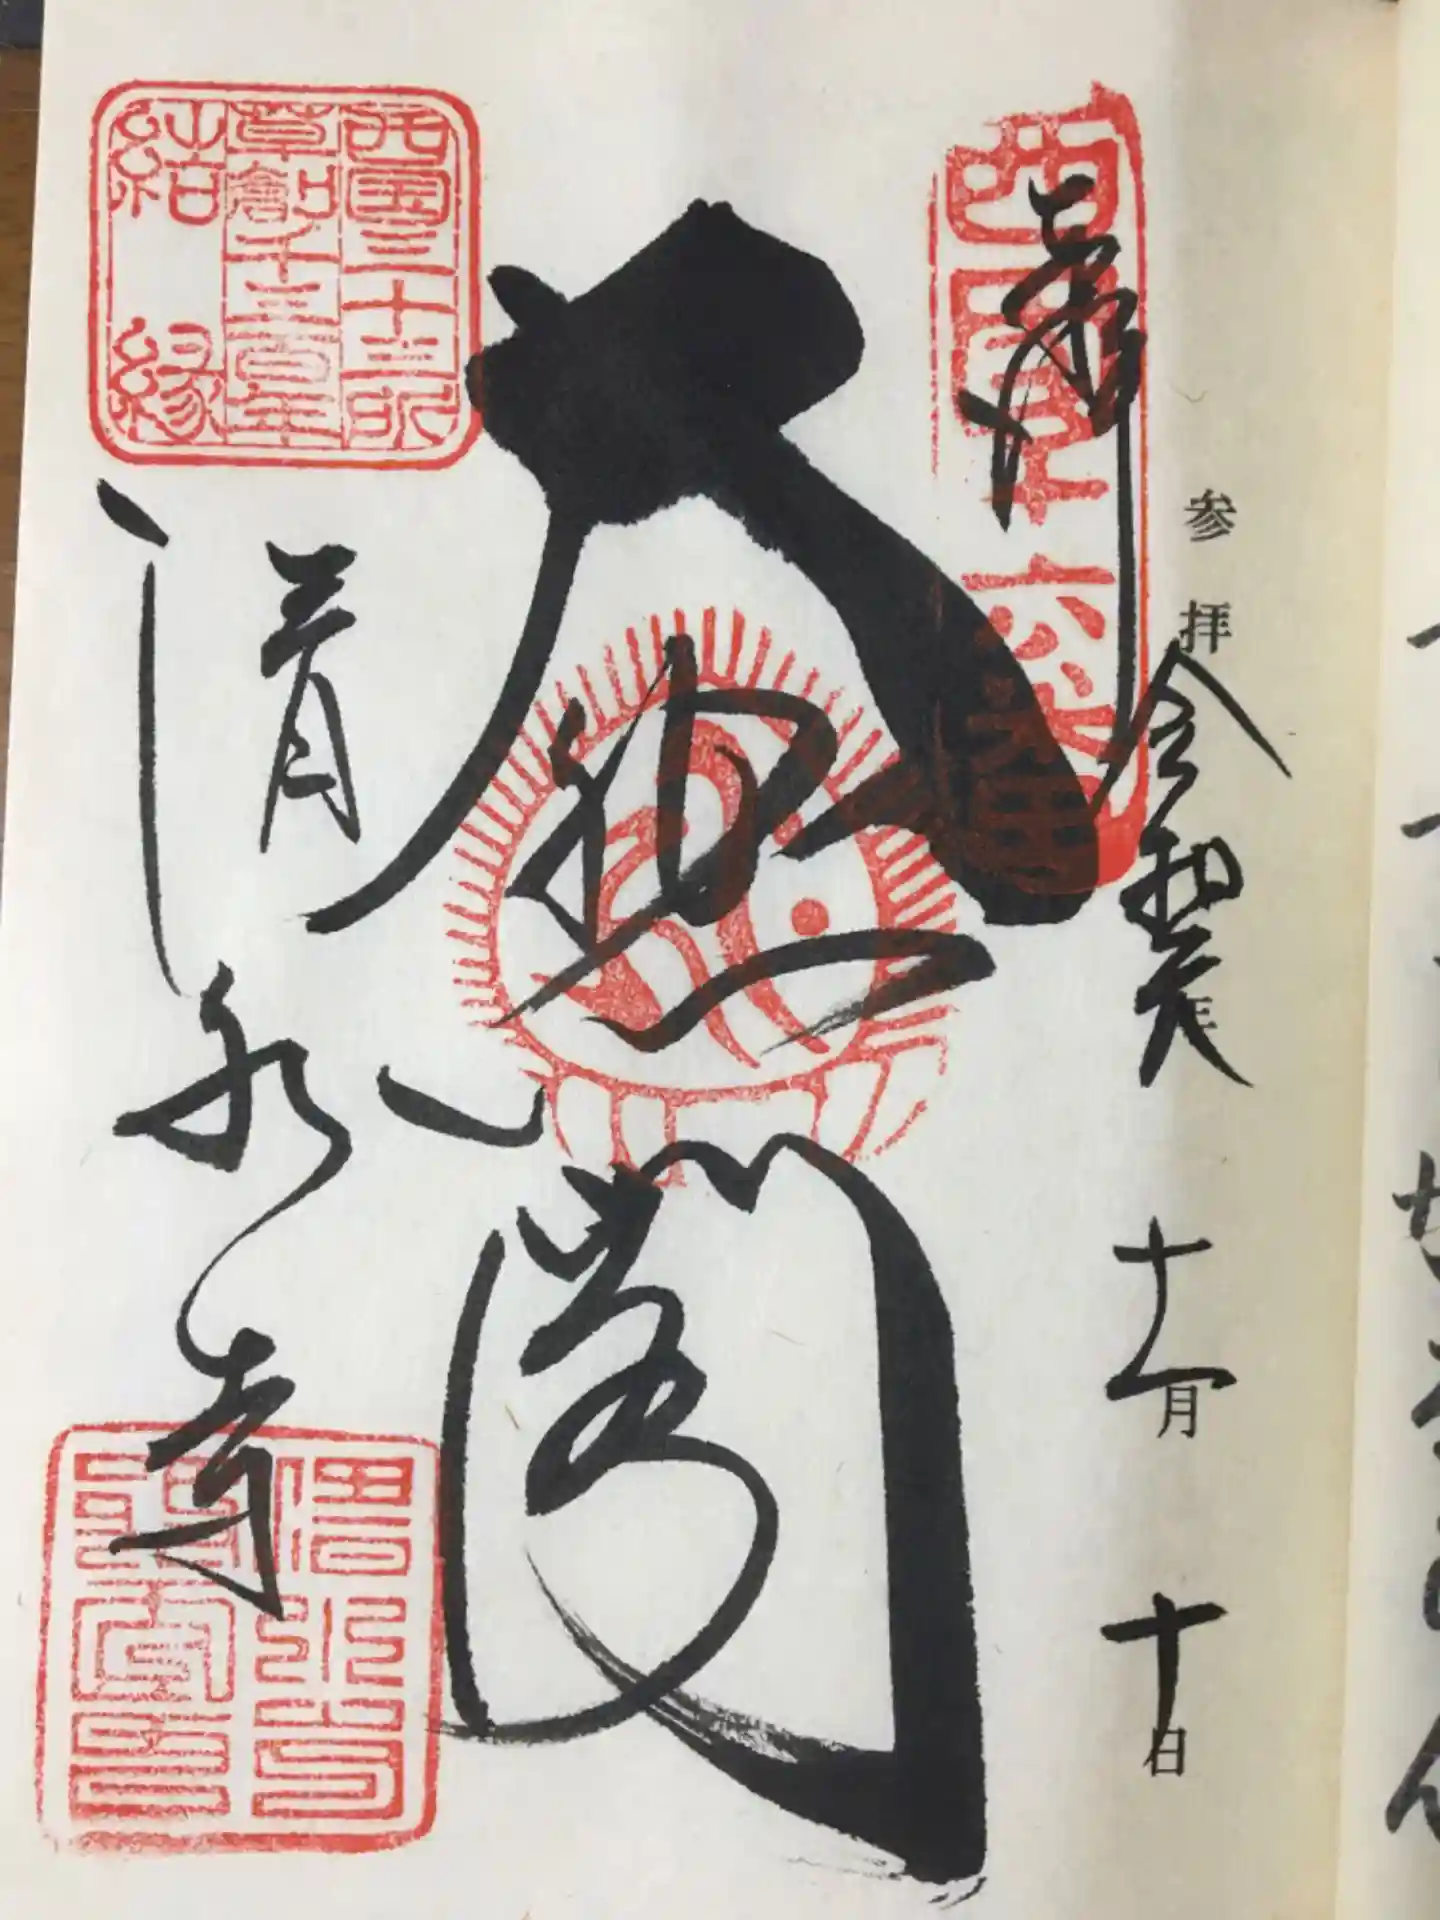 参拝
奉拝
西国十六番
令和元年
十一月十日
大悲閣
西国三十三所
草創千三百年
結縁
清水寺